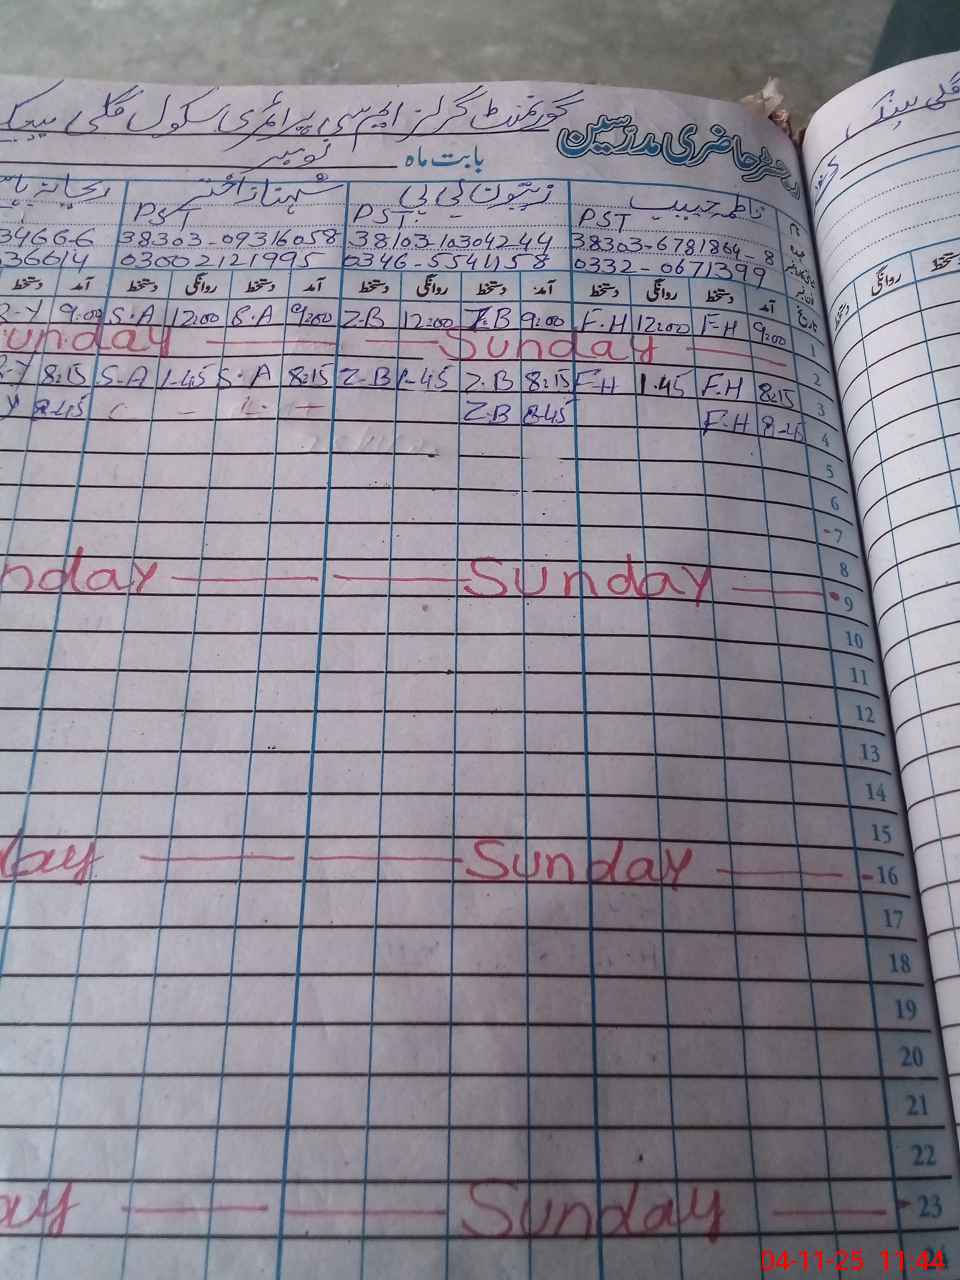 رجسٹر حاضری مدرسین گورنمنٹ گرلز ایم سی پرائمری سکول گلی
بابت ماہ نومبر
نام فاطمہ حبیب زیتون بی بی شہناز اختر ریحانہ
عہدہ PST PST PST
38303-6781864-8 38103-10304244 38303-09316058 34666-6
0332-0671399 0346-5541158 03002121995 036614
تاریخ آمد دستخط روانگی دستخط آمد دستخط روانگی دستخط آمد دستخط روانگی دستخط آمد دستخط
1 9:00 F.H 12:00 F.H 9:00 Z.B 12:00 Z.B 9:00 S.A 12:00 S.A 9:00 R-Y
2 Sunday Sunday
3 8:15 F.H 1.45 F.H 8:15 Z.B 1-45 Z.B 8:15 S.A 1-45 S.A 8:15
4 F.H 8:45 Z.B 8:45
5
6
7
8
9 Sunday nday
10
11
12
13
14
15
16 Sunday day
17
18
19
20
21
22
23 Sunday ay
24
روانگی دستخط
04-11-25 11:44